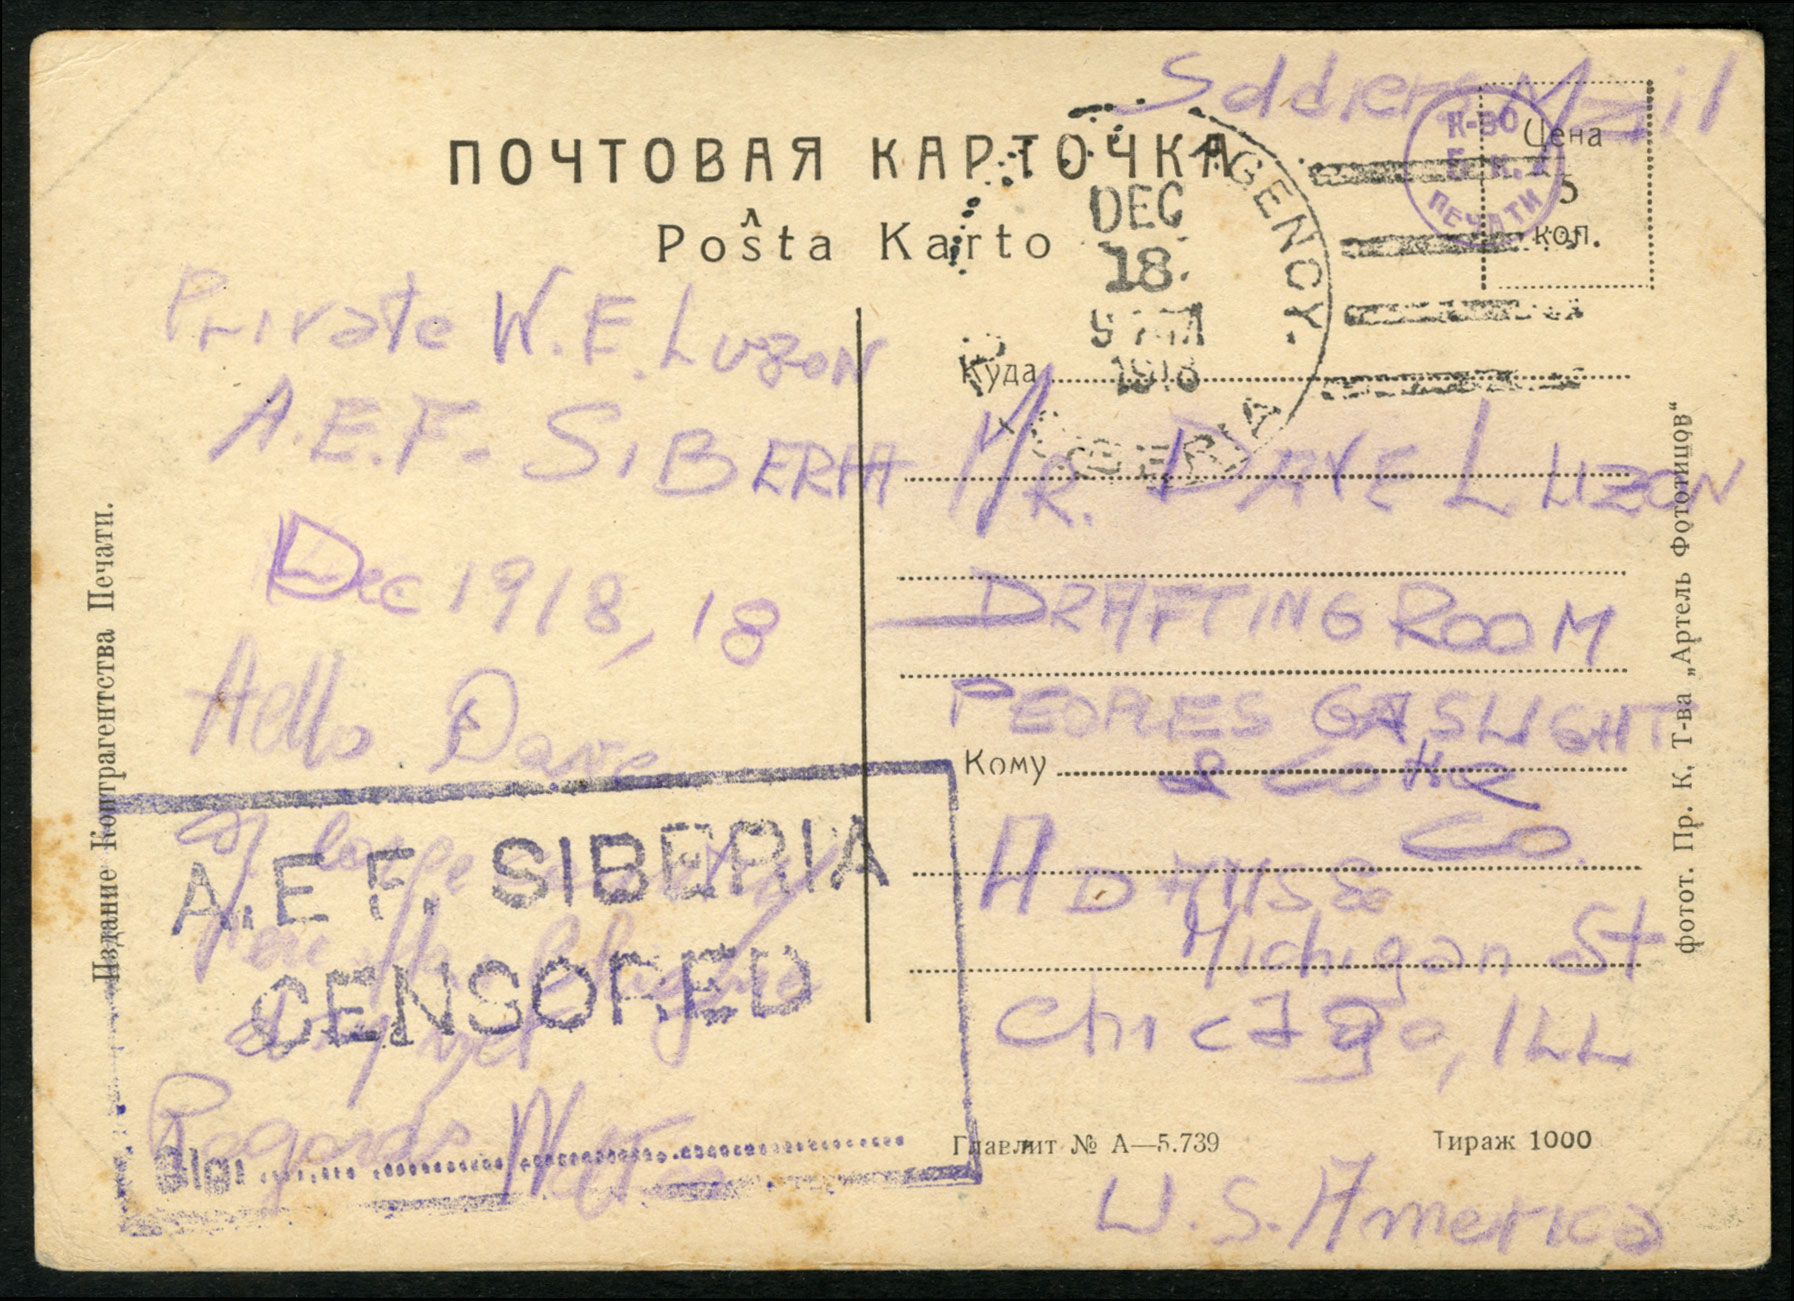 Soldiers Mail
ПОЧТОВАЯ КАРТОЧКА
Poŝta Karto
AGENCY.
DEC
18.
1918
SIBERIA
К-ВО
Б. К.
ПЕЧАТИ
Цена
5
коп.
Private W.E. Luzon
A.E.F. - SIBERIA
Dec 1918, 18
Hello Dave
Regards
A.E.F. SIBERIA
CENSORED
Sig.
Куда
MR. DAVE L LUZON
DRAFTING ROOM
PEOPLES GASLIGHT
Кому
& COKE
CO.
ADAMS &
Michigan St
Chicago, ILL
U.S. America
Главлит № А—5.739
Тираж 1000
Издание Контрагентства Печати.
фотот. Пр. К. Т-ва „Артель Фототипов“